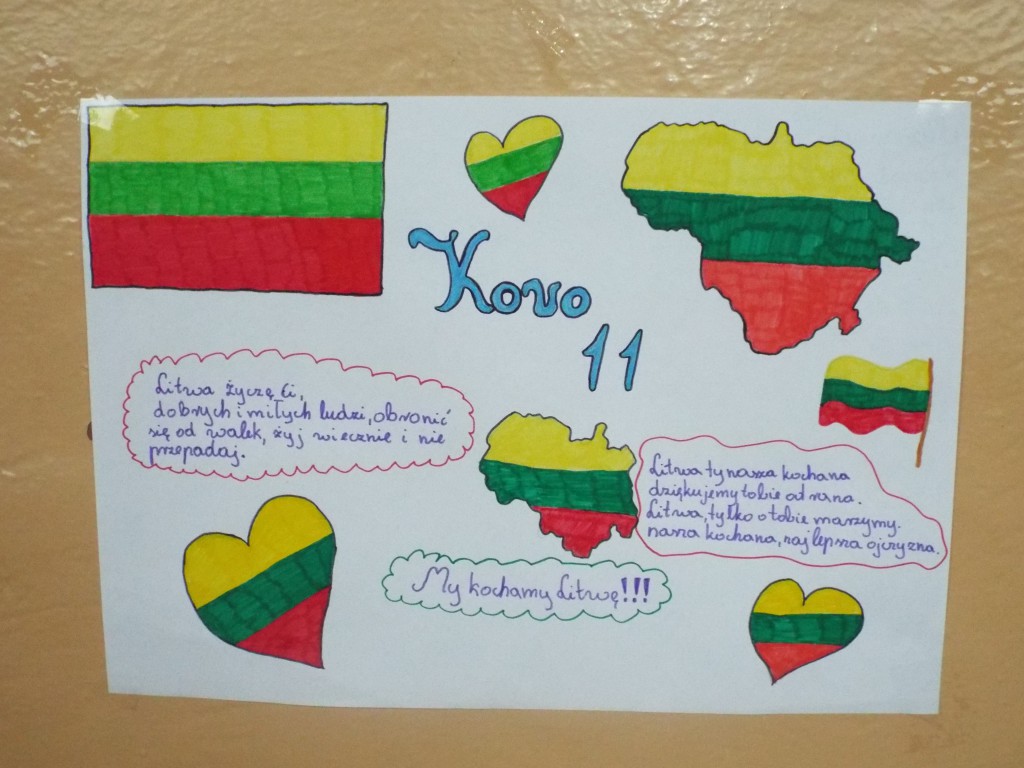 Kovo
11
Litwa życzę Ci,
dobrych i miłych ludzi, obronić
się od walek, żyj wiecznie i nie
przepadaj.
Litwa ty nasza kochana
dziękujemy tobie od rana.
Litwa, tylko o tobie marzymy.
nasza kochana, najlepsza ojczyzna.
My kochamy Litwę!!!